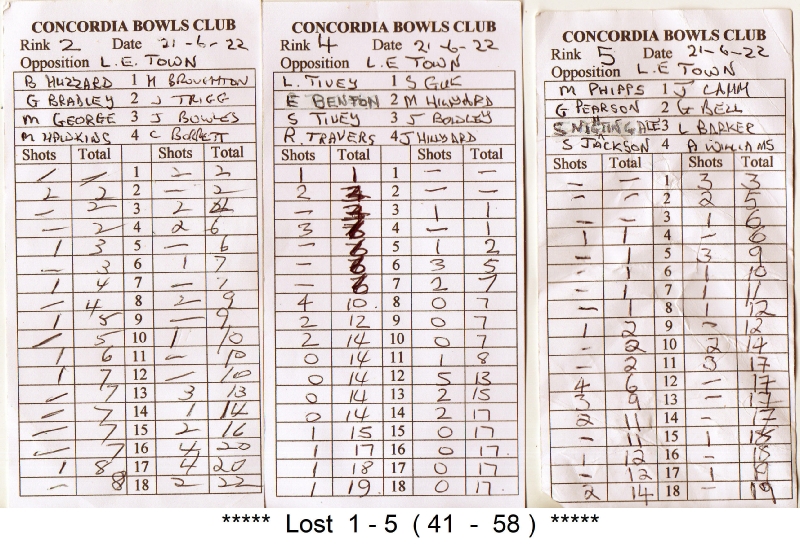 CONCORDIA BOWLS CLUB
Rink 2 Date 21-6-22
Opposition L.E. TOWN
B HUZZARD 1 H BROUGHTON
G BRADLEY 2 J TRIGG
M GEORGE 3 J BOWLES
M HAWKINS 4 C BORRETT
Shots Total Shots Total
- - 1 2 2
2 2 2 - 2
- 2 3 2 4
- 2 4 2 6
1 3 5 - 6
- 3 6 1 7
1 4 7 - 7
- 4 8 2 9
1 5 9 - 9
- 5 10 1 10
1 6 11 - 10
1 7 12 - 10
- 7 13 3 13
- 7 14 1 14
- 7 15 2 16
- 7 16 4 20
1 8 17 4 20
- 8 18 2 22
CONCORDIA BOWLS CLUB
Rink 4 Date 21-6-22
Opposition L.E TOWN
L. TIVEY 1 S GUK
E BENTON 2 M HILLYARD
S TIVEY 3 J BODDLEY
R. TRAVERS 4 J HILLYARD
Shots Total Shots Total
1 1 1 - -
2 3 2 - -
- 3 3 1 1
3 6 4 - 1
- 6 5 1 2
- 6 6 3 5
- 6 7 2 7
4 10. 8 0 7
2 12 9 0 7
2 14 10 0 7
0 14 11 1 8
0 14 12 5 13
0 14 13 2 15
0 14 14 2 17
1 15 15 0 17
1 17 16 0 17.
1 18 17 0 17
1 19. 18 0 17.
CONCORDIA BOWLS CLUB
Rink 5 Date 21-6-22
Opposition L.E TOWN
M PHIPPS 1 J CAMM
G PEARSON 2 G BELL
S NIGTINGALE 3 L BARKER
H
S JACKSON 4 A WILLIAMS
Shots Total Shots Total
- - 1 3 3
- - 2 2 5
- - 3 1 6
1 1 4 - 6
- 1 5 3 9
- 1 6 1 10
- 1 7 1 11
- 1 8 1 12
1 2 9 - 12
- 2 10 2 14
- 2 11 3 17
4 6 12 - 17
3 9 13 - 17
2 11 14 - 17
- 11 15 1 18
1 12 16 - 18
- 12 17 1 19
2 14 18 - 19
***** Lost 1 - 5 ( 41 - 58 ) *****